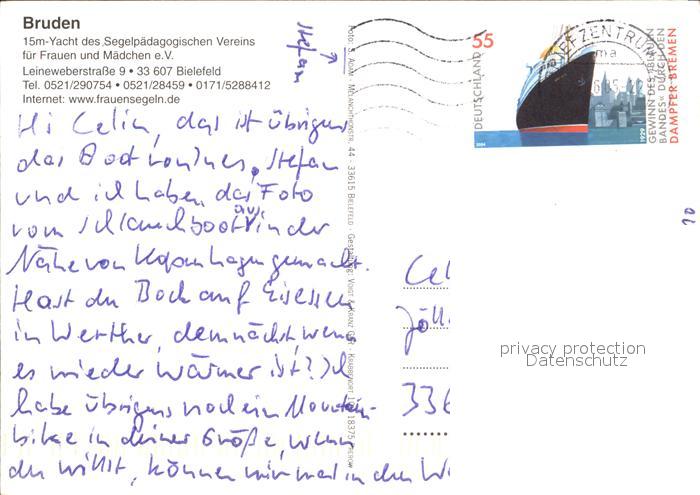 Bruden
15m-Yacht des Segelpädagogischen Vereins
für Frauen und Mädchen e.V.
Leineweberstraße 9 • 33 607 Bielefeld
Tel. 0521/290754 • 0521/28459 • 0171/5288412
Internet: www.frauensegeln.de
Stefan
Hi Celin, das ist übrigens
das Boot von Ines, Stefan
und ich haben das Foto
vom Schlauchboot aus in der
Nähe von Kopenhagen gemacht.
Hast du Bock auf Eisessen
in Werther, demnächst, wenn
es wieder wärmer ist? Ich
habe übrigens noch ein Mountain-
bike in deiner Größe, wenn
du willst, können wir mal in den W
Foto: S. Adam · Melanchthonstr. 44 · 33615 Bielefeld · Gestaltung:
DEUTSCHLAND
55
2004
1929
GEWINN DES »BLAUEN
BANDES« DURCH DEN
DAMPFER BREMEN
BRIEFZENTRUM
Cel
Jöll
336
10
privacy protection
Datenschutz